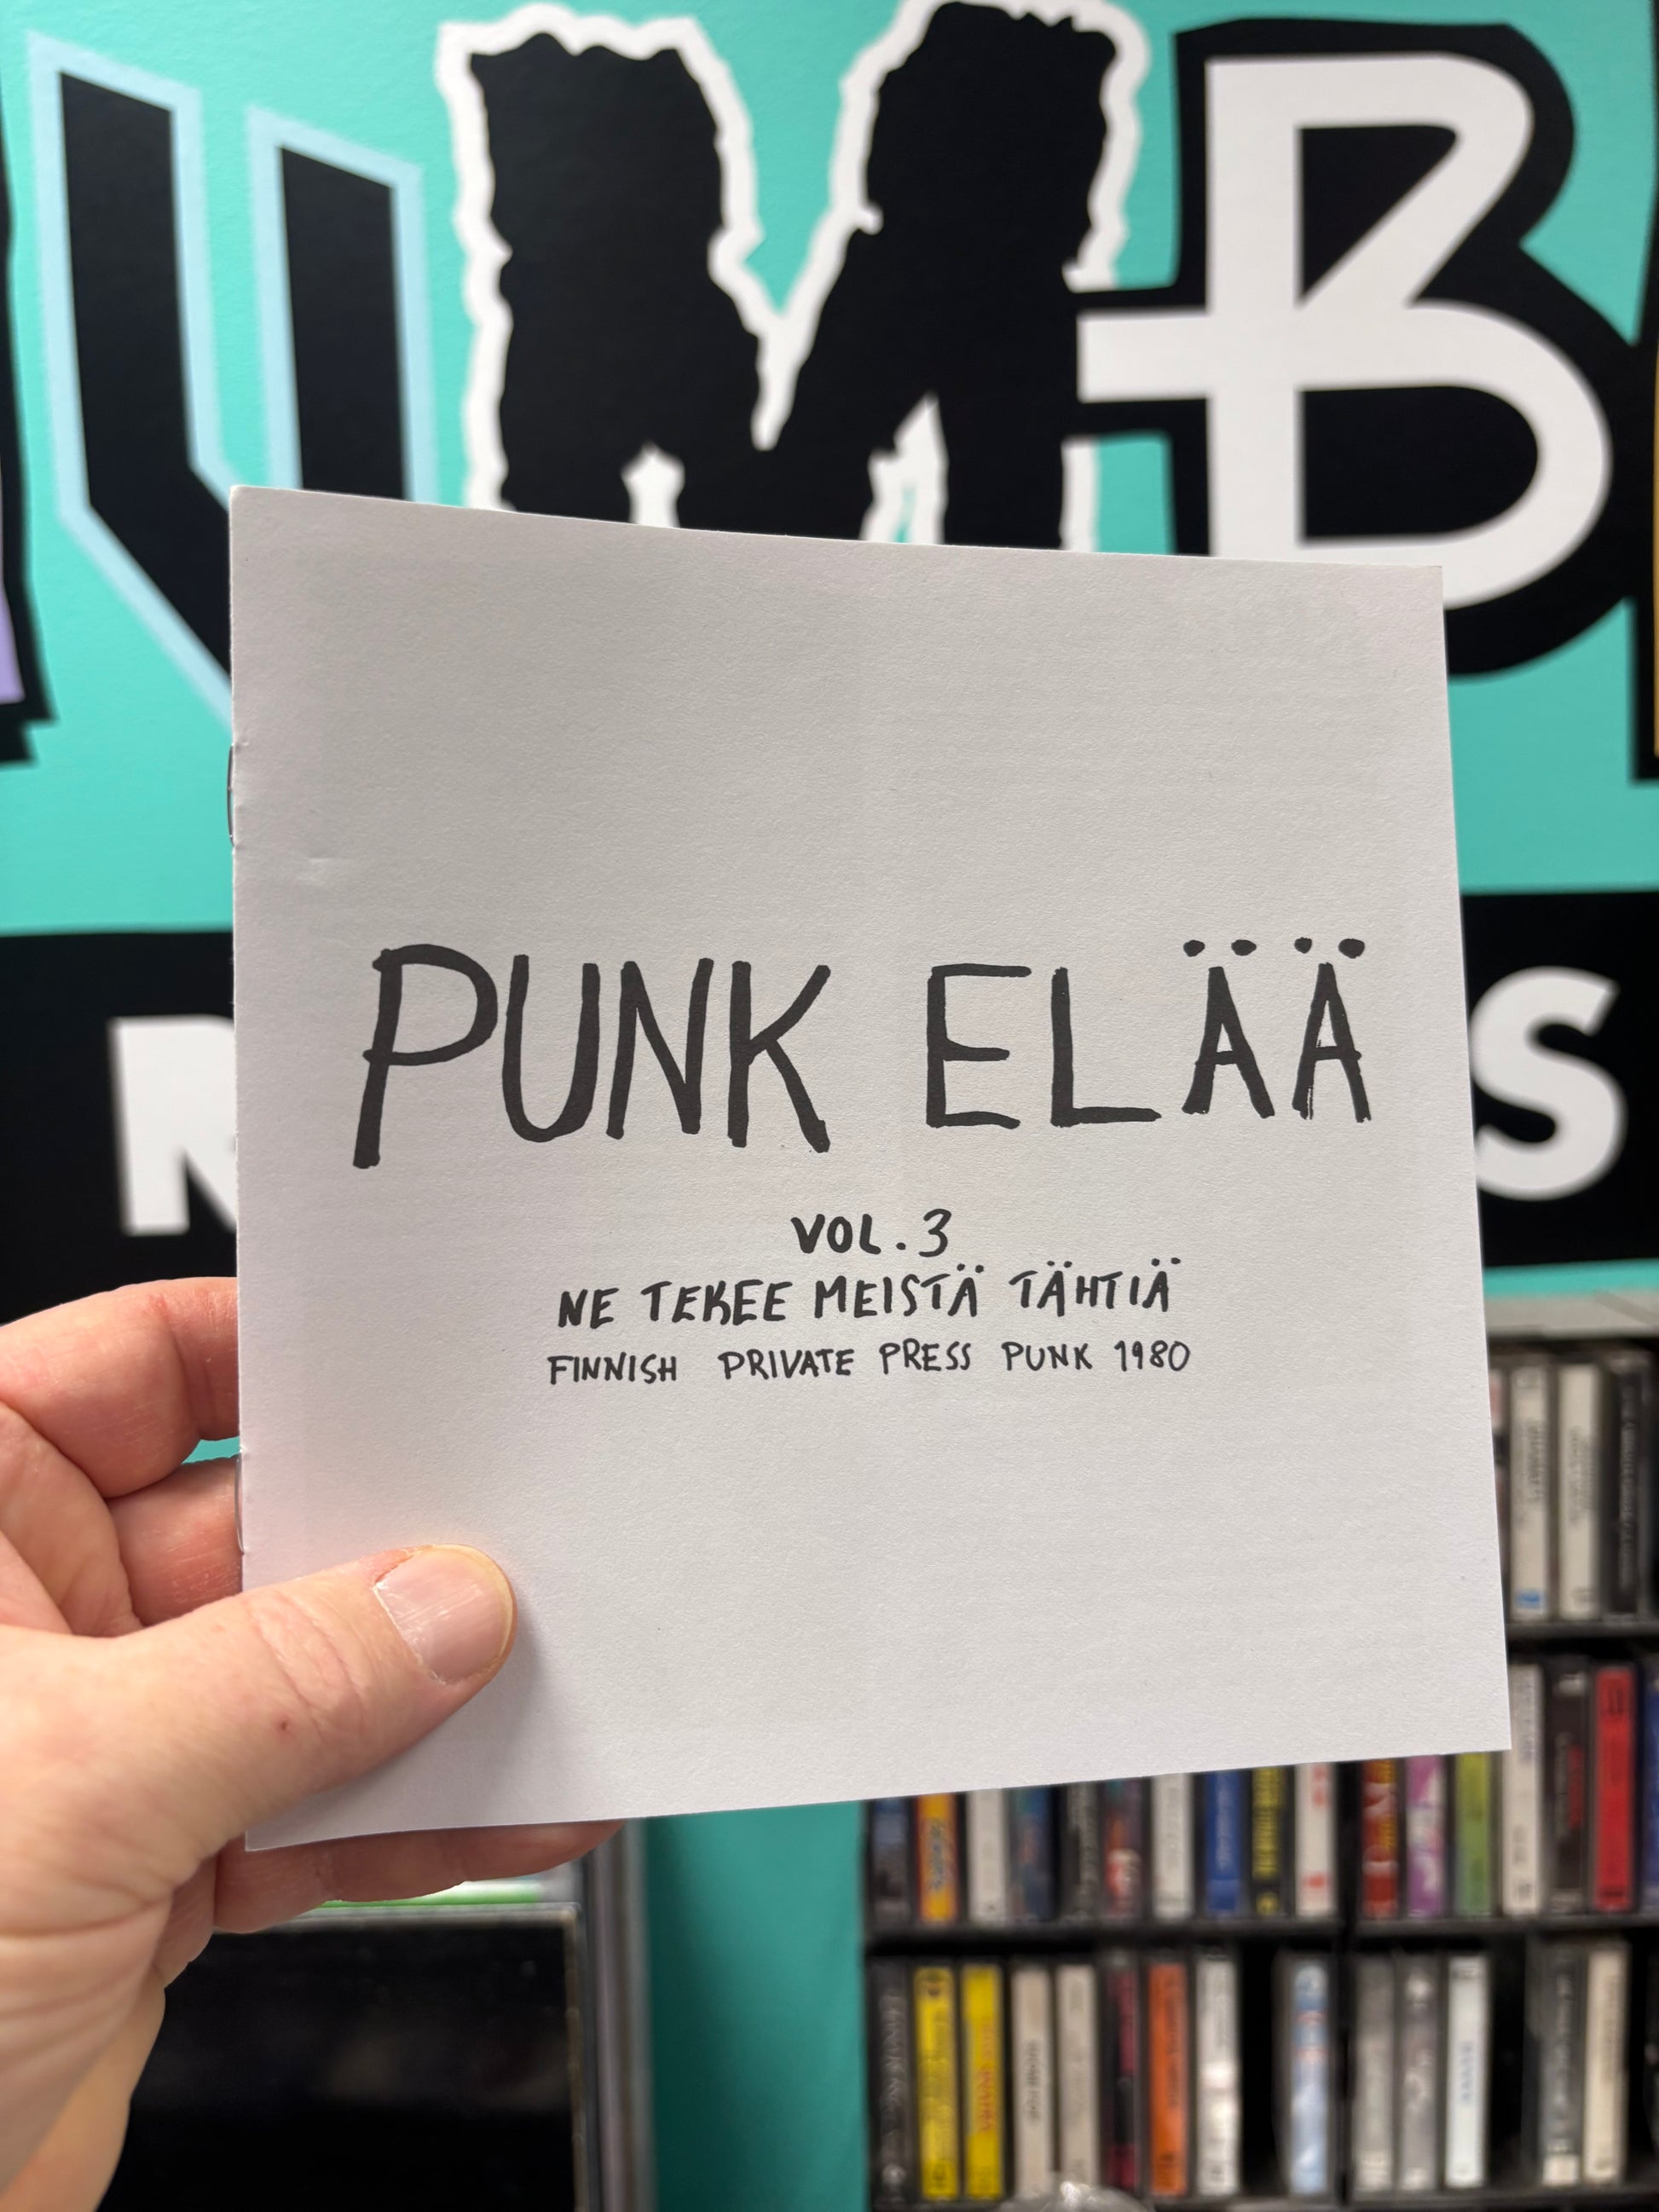 UMB
R S
PUNK ELÄÄ
VOL. 3
NE TEKEE MEISTÄ TÄHTIÄ
FINNISH PRIVATE PRESS PUNK 1980